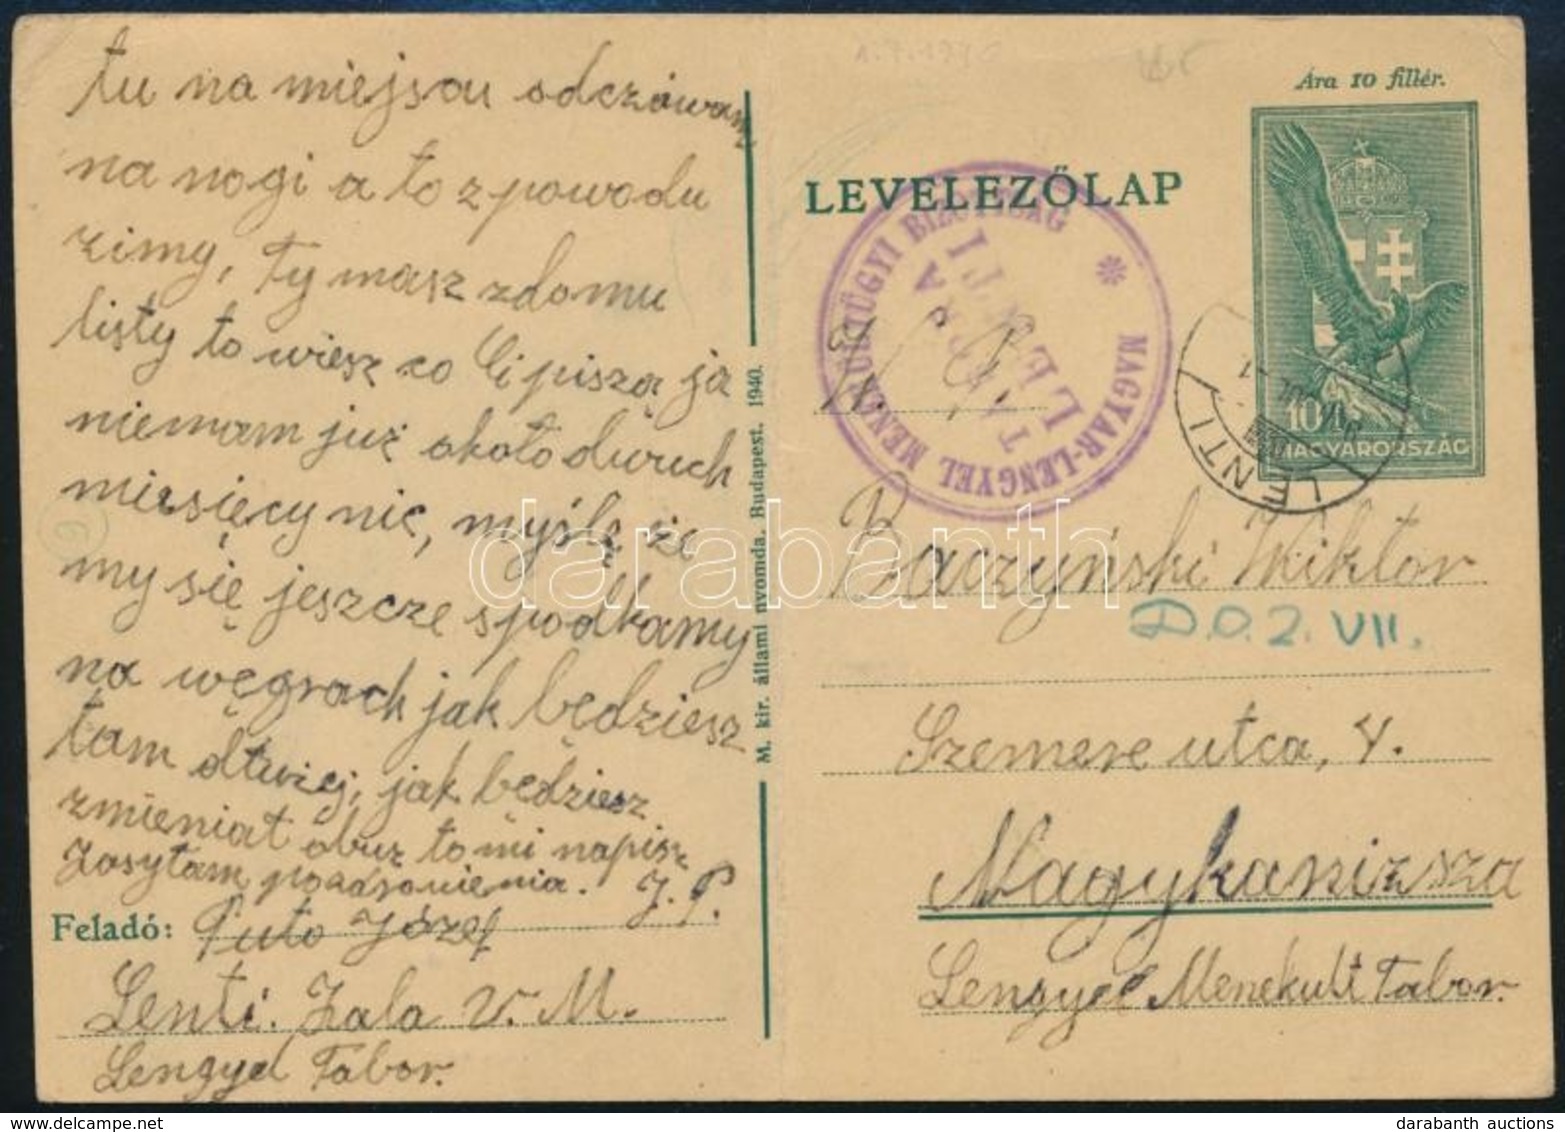 tu na miejscu odczówam
na nogi a to z powodu
zimy, Ty masz zdomu
listy to wiesz co Ci piszą, ja
niemam już około dwuch
miesięcy nic, myślę że
my się jeszcze spodkamy
na węgrach jak będziesz
tam dłużej, jak będziesz
zmieniał obuz to mi napisz
Zasyłam pozdrowienia. J. P.
Feladó: Puto Józef
Lenti. Zala v. M.
Lengyel Tabor.
M. kir. állami nyomda. Budapest. 1940.
Ára 10 fillér.
LEVELEZŐLAP
MAGYAR-LENGYEL MENEKÜLTÜGYI BIZOTTSÁG
TÁBORA
LENTI
LENTI
10 f
MAGYARORSZÁG
Baczyński Wiktor
D.O.2. VII.
Szemere utca, 4.
Nagykanizsza
Lengyel Menekult Tabor.
darabanth
darabanth auctions